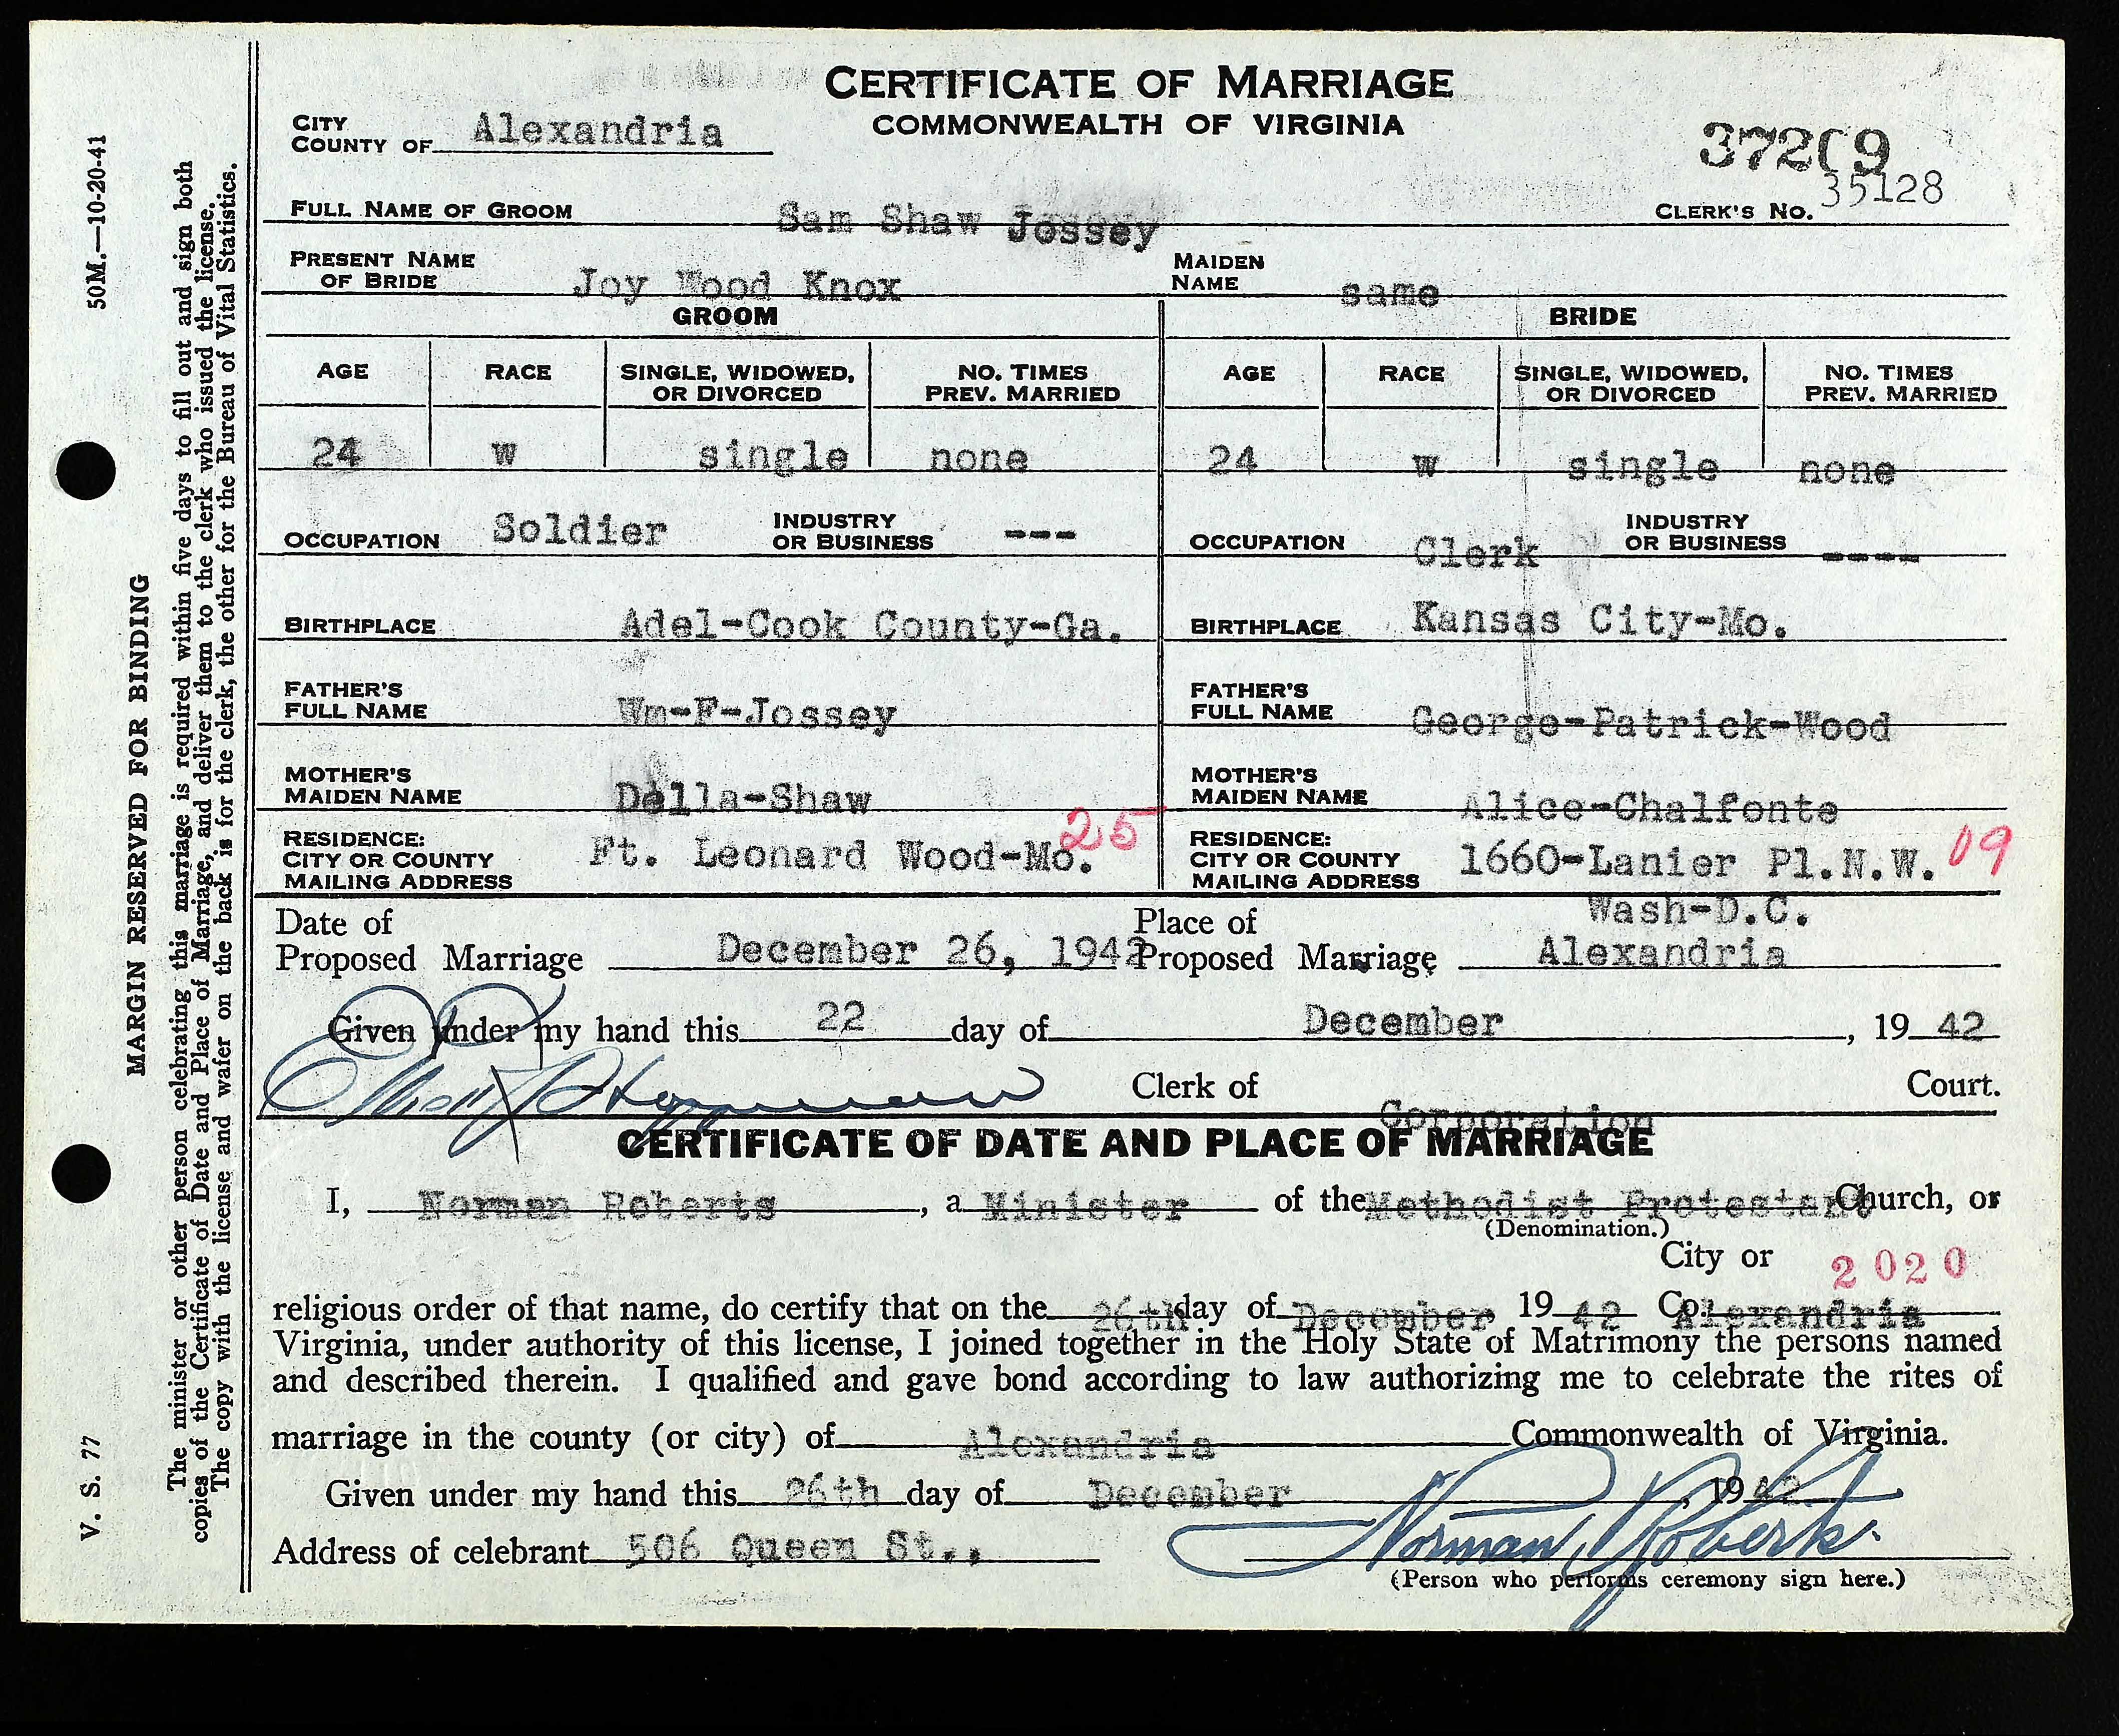 CERTIFICATE OF MARRIAGE
COMMONWEALTH OF VIRGINIA
CITY
COUNTY OF Alexandria
37209
CLERK'S No. 35128
FULL NAME OF GROOM Sam Shaw Jossey
PRESENT NAME
OF BRIDE Joy Wood Knox
MAIDEN
NAME same
GROOM
AGE RACE SINGLE, WIDOWED, OR DIVORCED NO. TIMES PREV. MARRIED
24 w single none
OCCUPATION Soldier INDUSTRY OR BUSINESS ---
BIRTHPLACE Adel-Cook County-Ga.
FATHER'S
FULL NAME Wm-F-Jossey
MOTHER'S
MAIDEN NAME Della-Shaw
RESIDENCE:
CITY OR COUNTY
MAILING ADDRESS Ft. Leonard Wood-Mo. 25
BRIDE
AGE RACE SINGLE, WIDOWED, OR DIVORCED NO. TIMES PREV. MARRIED
24 w single none
OCCUPATION Clerk INDUSTRY OR BUSINESS ----
BIRTHPLACE Kansas City-Mo.
FATHER'S
FULL NAME George-Patrick-Wood
MOTHER'S
MAIDEN NAME Alice-Chalfonte
RESIDENCE:
CITY OR COUNTY
MAILING ADDRESS 1660-Lanier Pl.N.W. 09
Wash-D.C.
Date of
Proposed Marriage December 26, 1942
Place of
Proposed Marriage Alexandria
Given under my hand this 22 day of December, 19 42
Clerk of Corporation Court.
CERTIFICATE OF DATE AND PLACE OF MARRIAGE
I, Norman Roberts, a Minister of the Methodist Protestant Church, or
(Denomination.)
City or 2020
religious order of that name, do certify that on the 26th day of December 19 42 Co. Alexandria
Virginia, under authority of this license, I joined together in the Holy State of Matrimony the persons named
and described therein. I qualified and gave bond according to law authorizing me to celebrate the rites of
marriage in the county (or city) of Alexandria Commonwealth of Virginia.
Given under my hand this 26th day of December, 1942
Address of celebrant 506 Queen St.,
Norman Roberts.
(Person who performs ceremony sign here.)
50M.—10-20-41
MARGIN RESERVED FOR BINDING
V. S. 77
The minister or other person celebrating this marriage is required within five days to fill out and sign both
copies of the Certificate of Date and Place of Marriage, and deliver them to the clerk who issued the license.
The copy with the license and wafer on the back is for the clerk, the other for the Bureau of Vital Statistics.